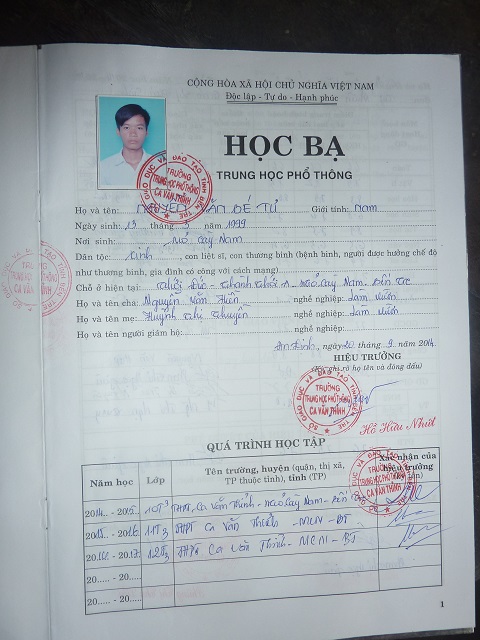 CỘNG HÒA XÃ HỘI CHỦ NGHĨA VIỆT NAM
Độc lập - Tự do - Hạnh phúc
HỌC BẠ
TRUNG HỌC PHỔ THÔNG
Họ và tên: NGUYỄN VĂN ĐỆ TỨ Giới tính: Nam
Ngày sinh: 13 tháng 3 năm 1999
Nơi sinh: Mỏ Cày Nam
Dân tộc: Kinh, con liệt sĩ, con thương binh (bệnh binh, người được hưởng chế độ
như thương binh, gia đình có công với cách mạng)
Chỗ ở hiện tại: Thới Đức - Thành Thới A - Mỏ Cày Nam. Bến Tre
Họ và tên cha: Nguyễn Văn Hấn nghề nghiệp: Làm vườn
Họ và tên mẹ: Huỳnh Thị Thuyền nghề nghiệp: Làm vườn
Họ và tên người giám hộ: nghề nghiệp:
An Định, ngày 20 tháng 9 năm 2014
HIỆU TRƯỞNG
(Ký, ghi rõ họ tên và đóng dấu)
SỞ GIÁO DỤC VÀ ĐÀO TẠO TỈNH BẾN TRE
TRƯỜNG
TRUNG HỌC PHỔ THÔNG
CA VĂN THỈNH
Hồ Hữu Nhứt
QUÁ TRÌNH HỌC TẬP
Năm học Lớp Tên trường, huyện (quận, thị xã, TP thuộc tỉnh), tỉnh (TP) Xác nhận của hiệu trưởng
2014 - 2015 10T3 THPT Ca Văn Thỉnh - Mỏ Cày Nam - Bến Tre
2015 - 2016 11T3 THPT Ca Văn Thỉnh - MCN - BT
2016 - 2017 12T3 THPT Ca Văn Thỉnh - MCN - BT
20..... - 20.....
20..... - 20.....
1